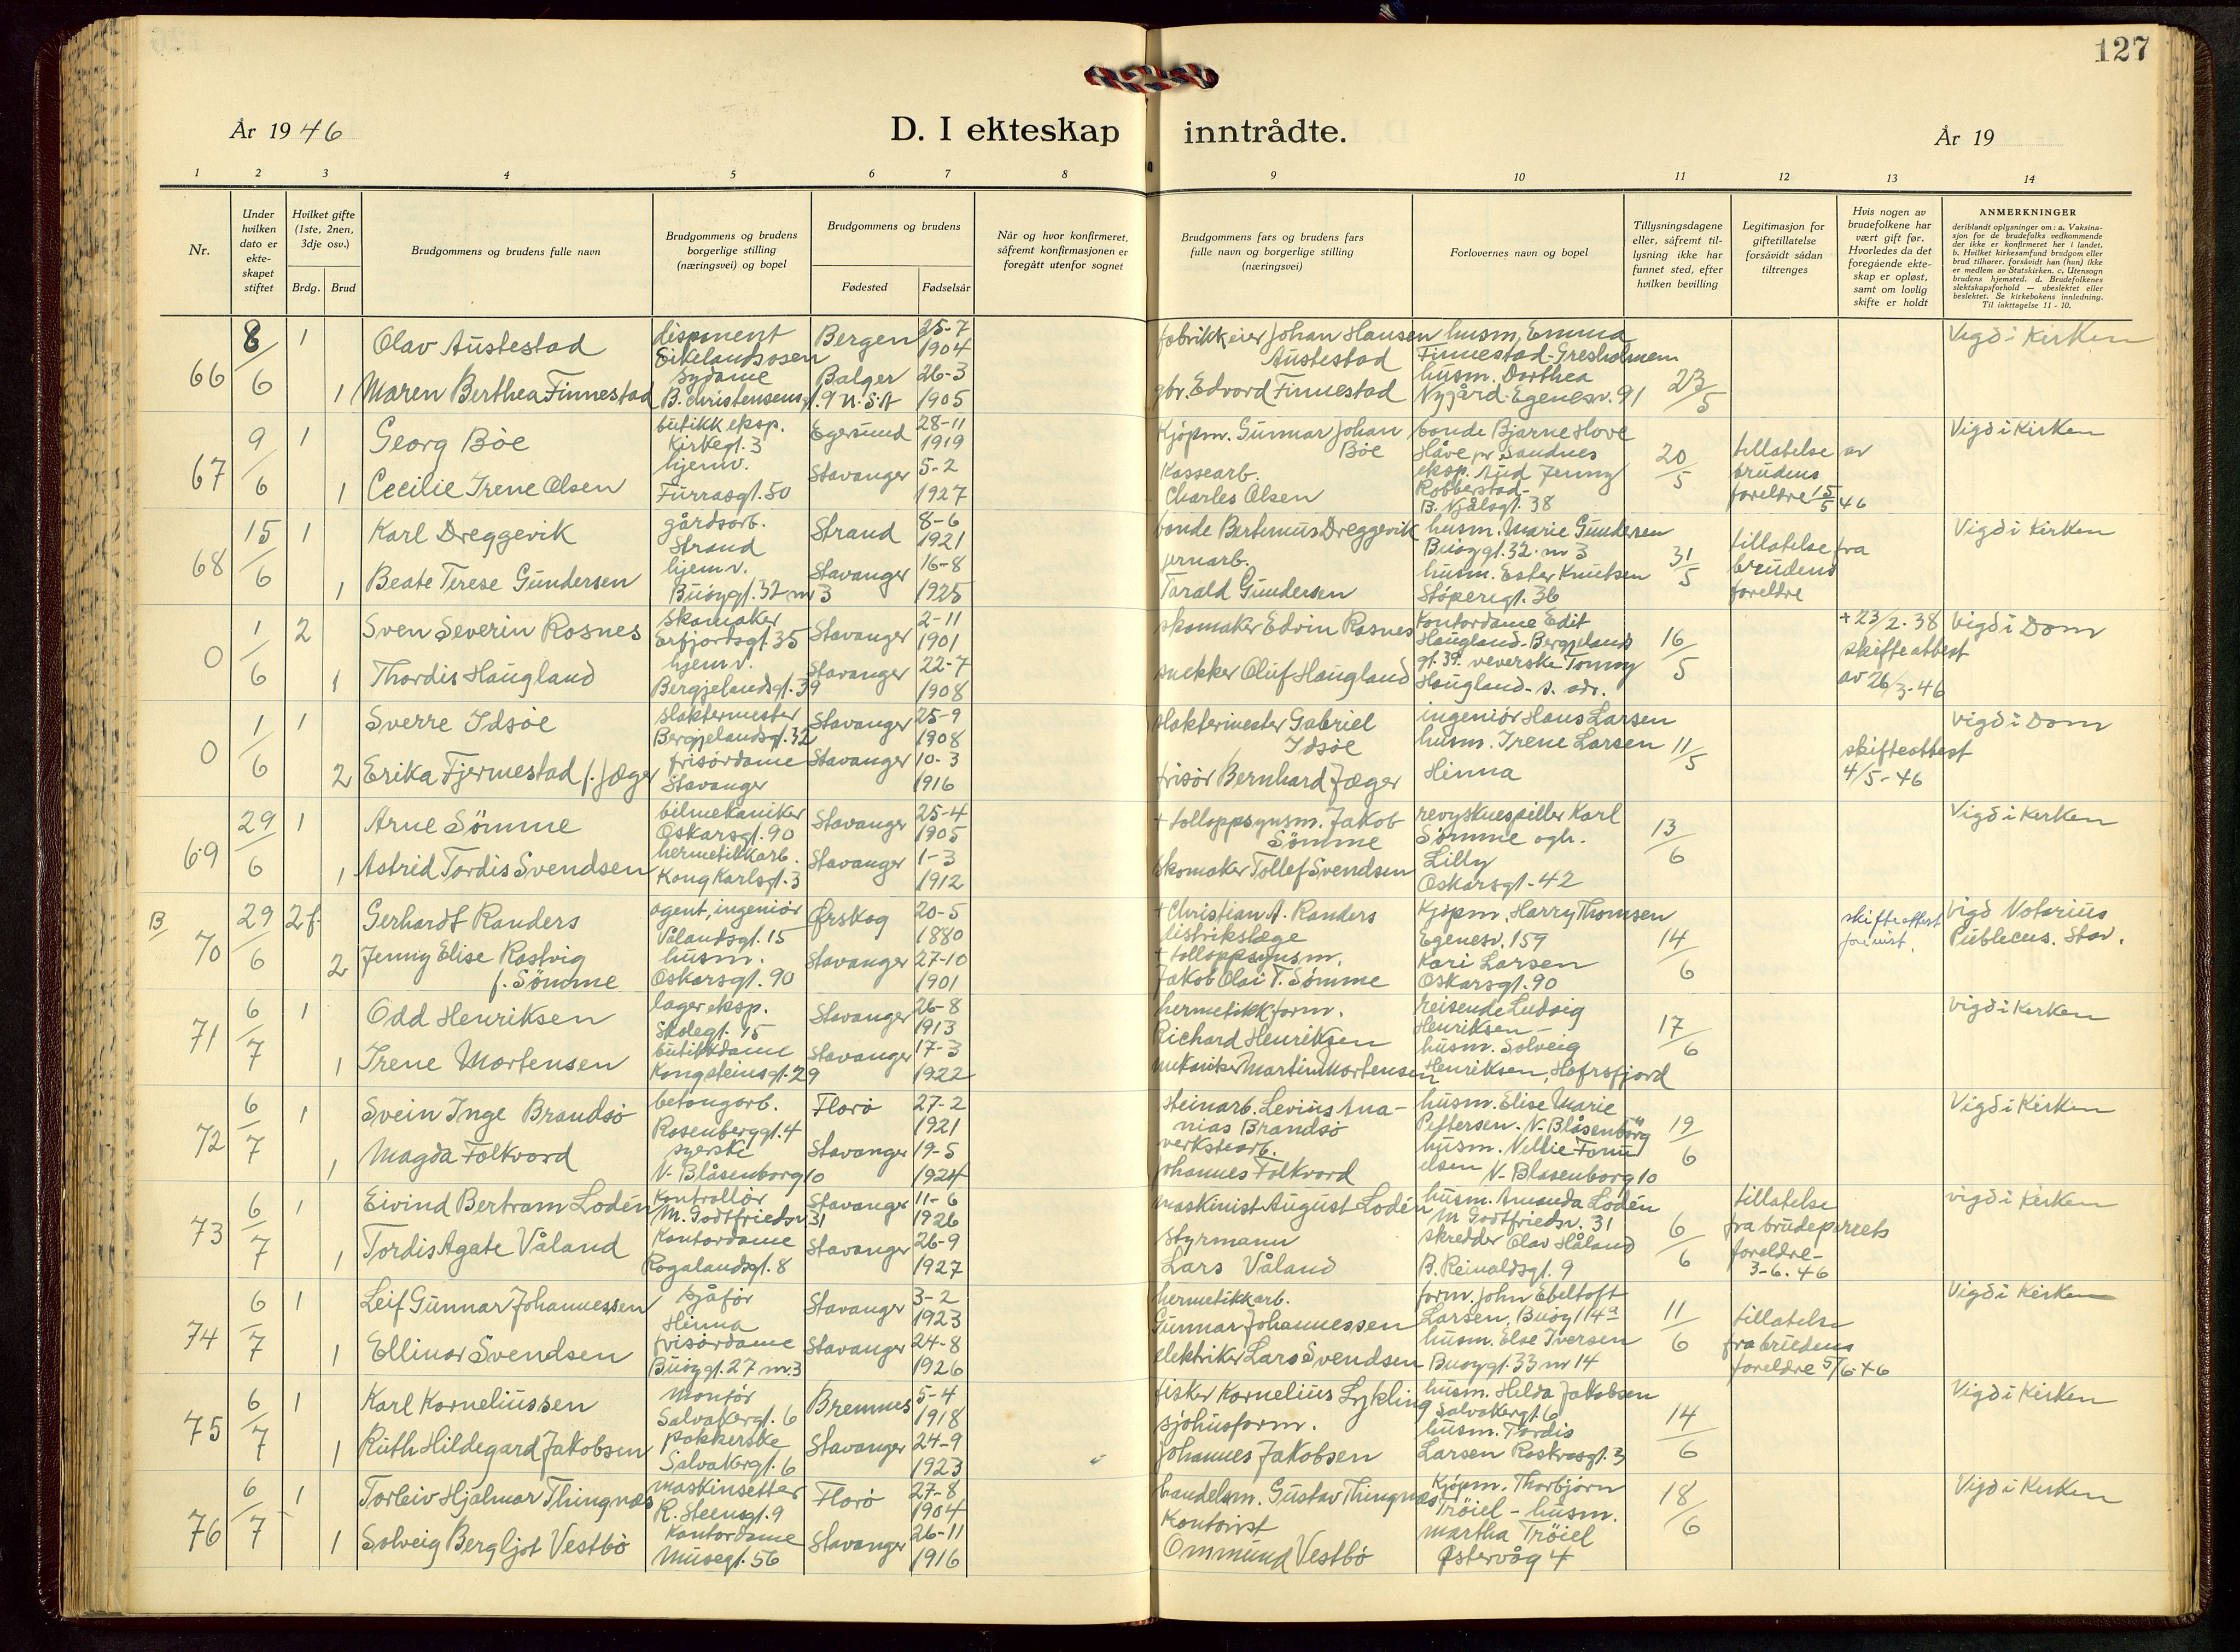 127
År 1946
D. I ekteskap inntrådte.
År 19
1 2 3 4 5 6 7 8 9 10 11 12 13 14
Nr.
Under hvilken dato er ekteskapet stiftet
Hvilket gifte (1ste, 2nen, 3dje osv.)
Brdg. Brud
Brudgommens og brudens fulle navn
Brudgommens og brudens borgerlige stilling (næringsvei) og bopel
Brudgommens og brudens
Fødested Fødselsår
Når og hvor konfirmeret, såfremt konfirmasjonen er foregått utenfor sognet
Brudgommens fars og brudens fars fulle navn og borgerlige stilling (næringsvei)
Forlovernes navn og bopel
Tillysningsdagene eller, såfremt tillysning ikke har funnet sted, efter hvilken bevilling
Legitimasjon for giftetillatelse forsåvidt sådan tiltrenges
Hvis nogen av brudefolkene har vært gift før. Hvorledes da det foregående ekteskap er opløst, samt om lovlig skifte er holdt
ANMERKNINGER
deriblandt oplysninger om: a. Vaksinasjon for de brudefolks vedkommende der ikke er konfirmeret her i landet. b. Hvilket kirkesamfund brudgom eller brud tilhører, forsåvidt han (hun) ikke er medlem av Statskirken. c. Utensogn brudens hjemsted. d. Brudefolkenes slektskapsforhold — ubeslektet eller beslektet. Se kirkebokens innledning. Til iakttagelse 11 - 10.
66 8/6 1 Olav Austestad disponent Eikelandsosen Bergen 25-7 1904 fabrikkeier Johan Hansen Austestad husm. Emma Finnestad-Gresholmen 23/5 Vigd i Kirken
1 Maren Berthea Finnestad sydame B. Christensensgt. 9 N.S.A Balger 26-3 1905 gbr. Edvard Finnestad husm. Dorthea Nygård-Egenesv. 91
67 9/6 1 Georg Böe butikkeksp. Kirkegt. 3 Egersund 28-11 1919 Kjøpm. Gunnar Johan Böe bonde Bjarne Hove Håve pr Sandnes 20/5 tillatelse av brudens foreldre 15/5 46 Vigd i Kirken
1 Cecilie Irene Olsen hjemv. Furrasgt. 50 Stavanger 5-2 1927 Kassearb. Charles Olsen eksp. Aud Jenny Robberstad- B. Njålsgt. 38
68 15/6 1 Karl Dreggevik gårdsarb. Strand Strand 8-6 1921 bonde Bertinius Dreggevik husm. Marie Gundersen Buøygt. 32 nr 3 31/5 tillatelse fra brudens foreldre Vigd i Kirken
1 Beate Terese Gundersen hjemv. Buøygt. 32 nr 3 Stavanger 16-8 1925 jernarb. Tarald Gundersen husm. Ester Knutsen Støperigt. 36
0 1/6 2 Sven Severin Rosnes Skomaker Erfjordsgt. 35 Stavanger 2-11 1901 skomaker Edvin Rosnes Kontordame Edit Haugland-Bergjelandsgt. 39. 16/5 + 23/2. 38 skifteattest av 26/3-46 Vigd i Dom
1 Thordis Haugland hjemv. Bergjelandsgt. 39 Stavanger 22-7 1908 snekker Oluf Haugland veverske Tonny Haugland- s. adr.
0 1/6 1 Sverre Idsöe slaktermester Bergjelandsgt. 32 Stavanger 25-9 1908 slaktermester Gabriel Idsöe ingeniör Hans Larsen husm. Irene Larsen Hinna 11/5 skifteattest 4/5-46 Vigd i Dom
2 Erika Fjermestad f. Jæger frisördame Stavanger Stavanger 10-3 1916 frisör Bernhard Jæger
69 29/6 1 Arne Sömme bilmekaniker Oskarsgt. 90 Stavanger 25-4 1905 + tolloppsynsm. Jakob Sömme revyskuespiller Karl Sömme ogh. Lilly Oskarsgt-42 13/6 Vigd i Kirken
1 Astrid Tordis Svendsen hermetikkarb. Kong Karlsgt. 3 Stavanger 1-3 1912 skomaker Tollef Svendsen
B/ 70 29/6 2 f. Gerhardt Randers agent, ingeniör Vålandsgt. 15 Ørskog 20-5 1880 + Christian A. Randers distrikslæge Kjöpm. Harry Thomsen Egenesv. 159 14/6 skifteattest Vigd Notarius Publicus. Stav.
2 Jenny Elise Rostvig f. Sömme husm. Oskarsgt. 90 Stavanger 27-10 1901 + tolloppsynsm. Jakob Olai T. Sømme Kari Larsen Oskarsgt. 90
71 6/7 1 Odd Henriksen lagereksp. Skolegt. 15 Stavanger 26-8 1913 hermetikkform. Richard Henriksen reisende Ludvig Henriksen- 17/6 Vigd i Kirken
1 Irene Mortensen butikkdame Kongsteinsgt. 29 Stavanger 17-3 1922 mekaniker Martin Mortensen husm. Solveig Henriksen, Hafrsfjord
72 6/7 1 Svein Inge Brandsö betongarb. Rosenberggt. 4 Florö 27-2 1921 steinarb. Levius Ananias Brandsö husm. Elise Marie Pettersen. N-Blåsenborg 19/6 Vigd i Kirken
1 Magda Folkvord syerske N. Blåsenborg 10 Stavanger 19-5 1924 verkstearb. Johannes Folkvord husm. Nellie N-Blåsenborg 10
73 6/7 1 Eivind Bertram Lodén Kontrollör M. Godtfriedsv. 31 Stavanger 11-6 1926 maskinist August Lodén husm. Amanda Lodén M Godtfriedsv. 31 6/6 tillatelse fra brudeparrets foreldre- 3-6. 46 vigd i Kirken
1 Tordis Agate Våland Kontordame Rogalandsgt. 8 Stavanger 26-9 1927 Styrmann Lars Våland skredder Olav Håland B. Reinaldsgt. 9
74 6/7 1 Leif Gunnar Johannessen sjåför Hinna Stavanger 3-2 1923 hermetikkarb. Gunnar Johannessen form. John Ebeltoft Larsen, Buöy 114a 11/6 tillatelse fra brudens foreldre 5/6-46 Vigd i Kirken
1 Ellinor Svendsen frisördame Buöygt. 27 nr. 3 Stavanger 24-8 1926 elektriker Lars Svendsen husm. Else Iversen Buøygt. 33 nr 14
75 6/7 1 Karl Korneliussen montör Salvakergt. 6 Bremnes 5-4 1918 fisker Kornelius Lykling husm. Helda Jakobsen Salvakergt. 6 14/6 Vigd i Kirken
1 Ruth Hildegard Jakobsen pakkerske Salvakergt. 6 Stavanger 24-9 1923 sjöhusform. Johannes Jakobsen husm. Tordis Larsen Roskvasgt. 3
76 6/7 1 Torleiv Hjalmar Thingnæs maskinsetter R. Steensgt. 9 Florö 27-8 1904 handelsm. Gustav Thingnæs Kjöpm. Thorbjörn Tröiel - husm. martha Tröiel Østervåg 4 18/6 Vigd i Kirken
1 Solveig Bergljot Vestbö Kontordame Musegt. 56 Stavanger 26-11 1916 Kontorist Ommund Vestbö